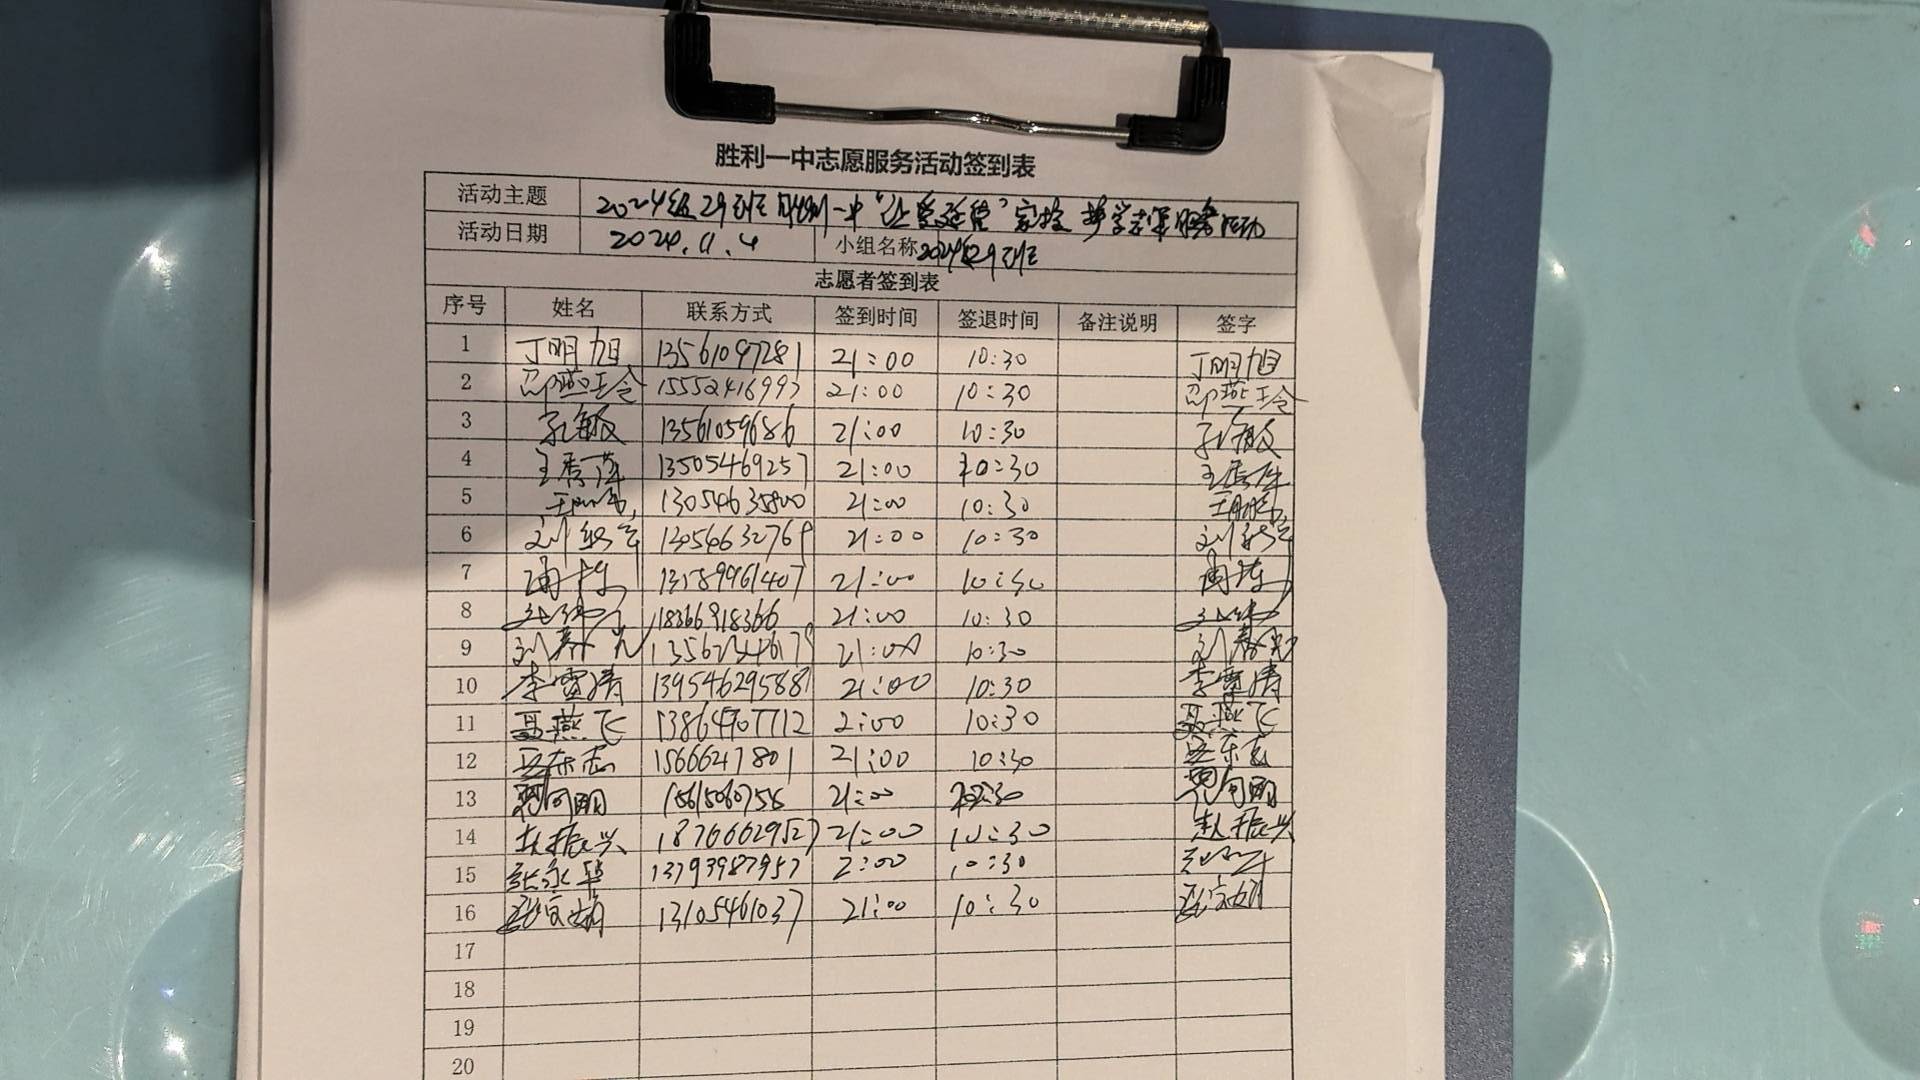 胜利一中志愿服务活动签到表
活动主题 2024级29班胜利一中“让爱延续”家校 护学志愿服务活动
活动日期 2024.11.4 小组名称 2024级29班
志愿者签到表
序号 姓名 联系方式 签到时间 签退时间 备注说明 签字
1 丁明旭 13561097281 21:00 10:30 丁明旭
2 邵燕玲 15552416993 21:00 10:30 邵燕玲
3 孔敏 13561059686 21:00 10:30 孔敏
4 王秀萍 13505469257 21:00 10:30 王秀萍
5 13054635800 21:00 10:30
6 21:00 10:30
7 21:00 10:30
8 18366918366 21:00 10:30
9 刘春光 21:00 10:30 刘春光
10 李雪清 13954629588 21:00 10:30 李雪清
11 聂燕飞 13864707712 2:00 10:30 聂燕飞
12 1566647801 21:00 10:30
13 21:00 10:30
14 赵振兴 18766629527 21:00 10:30 赵振兴
15 张永华 13793987957 2:00 10:30
16 13105461037 21:00 10:30
17
18
19
20